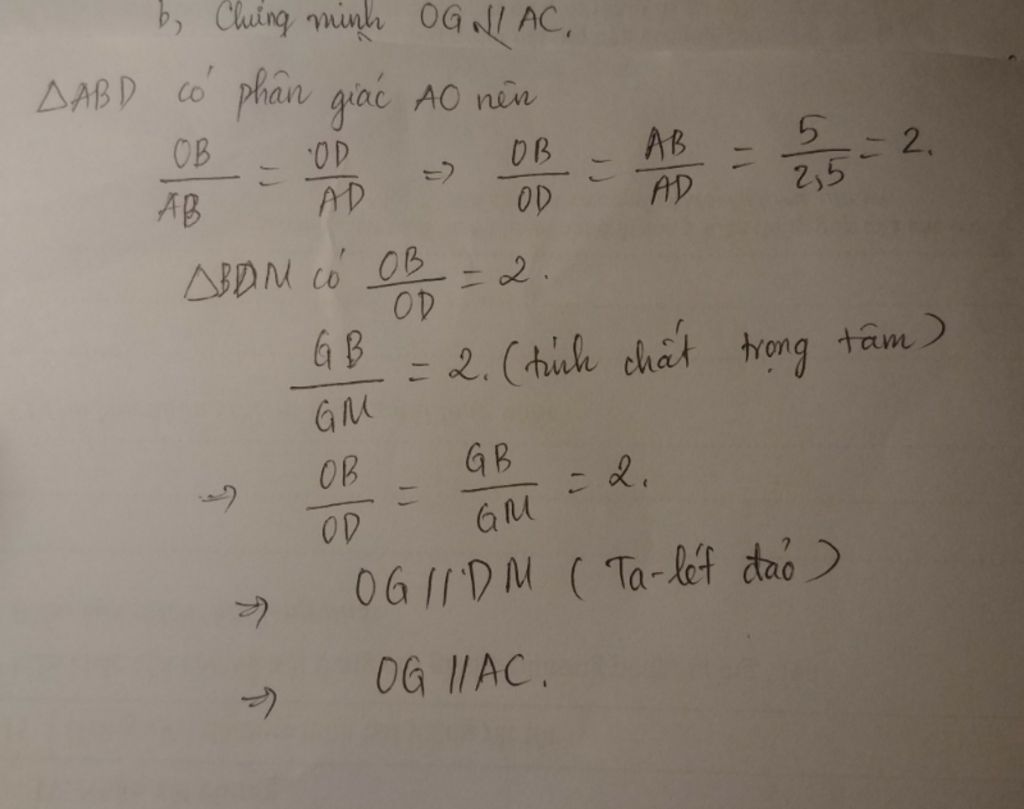 b, Chứng minh OG // AC.
△ABD có phân giác AO nên
OB/AB = OD/AD => OB/OD = AB/AD = 5/2,5 = 2.
△BDM có OB/OD = 2.
GB/GM = 2. (tính chất trọng tâm)
=> OB/OD = GB/GM = 2.
=> OG // DM (Ta-lét đảo)
=> OG // AC.